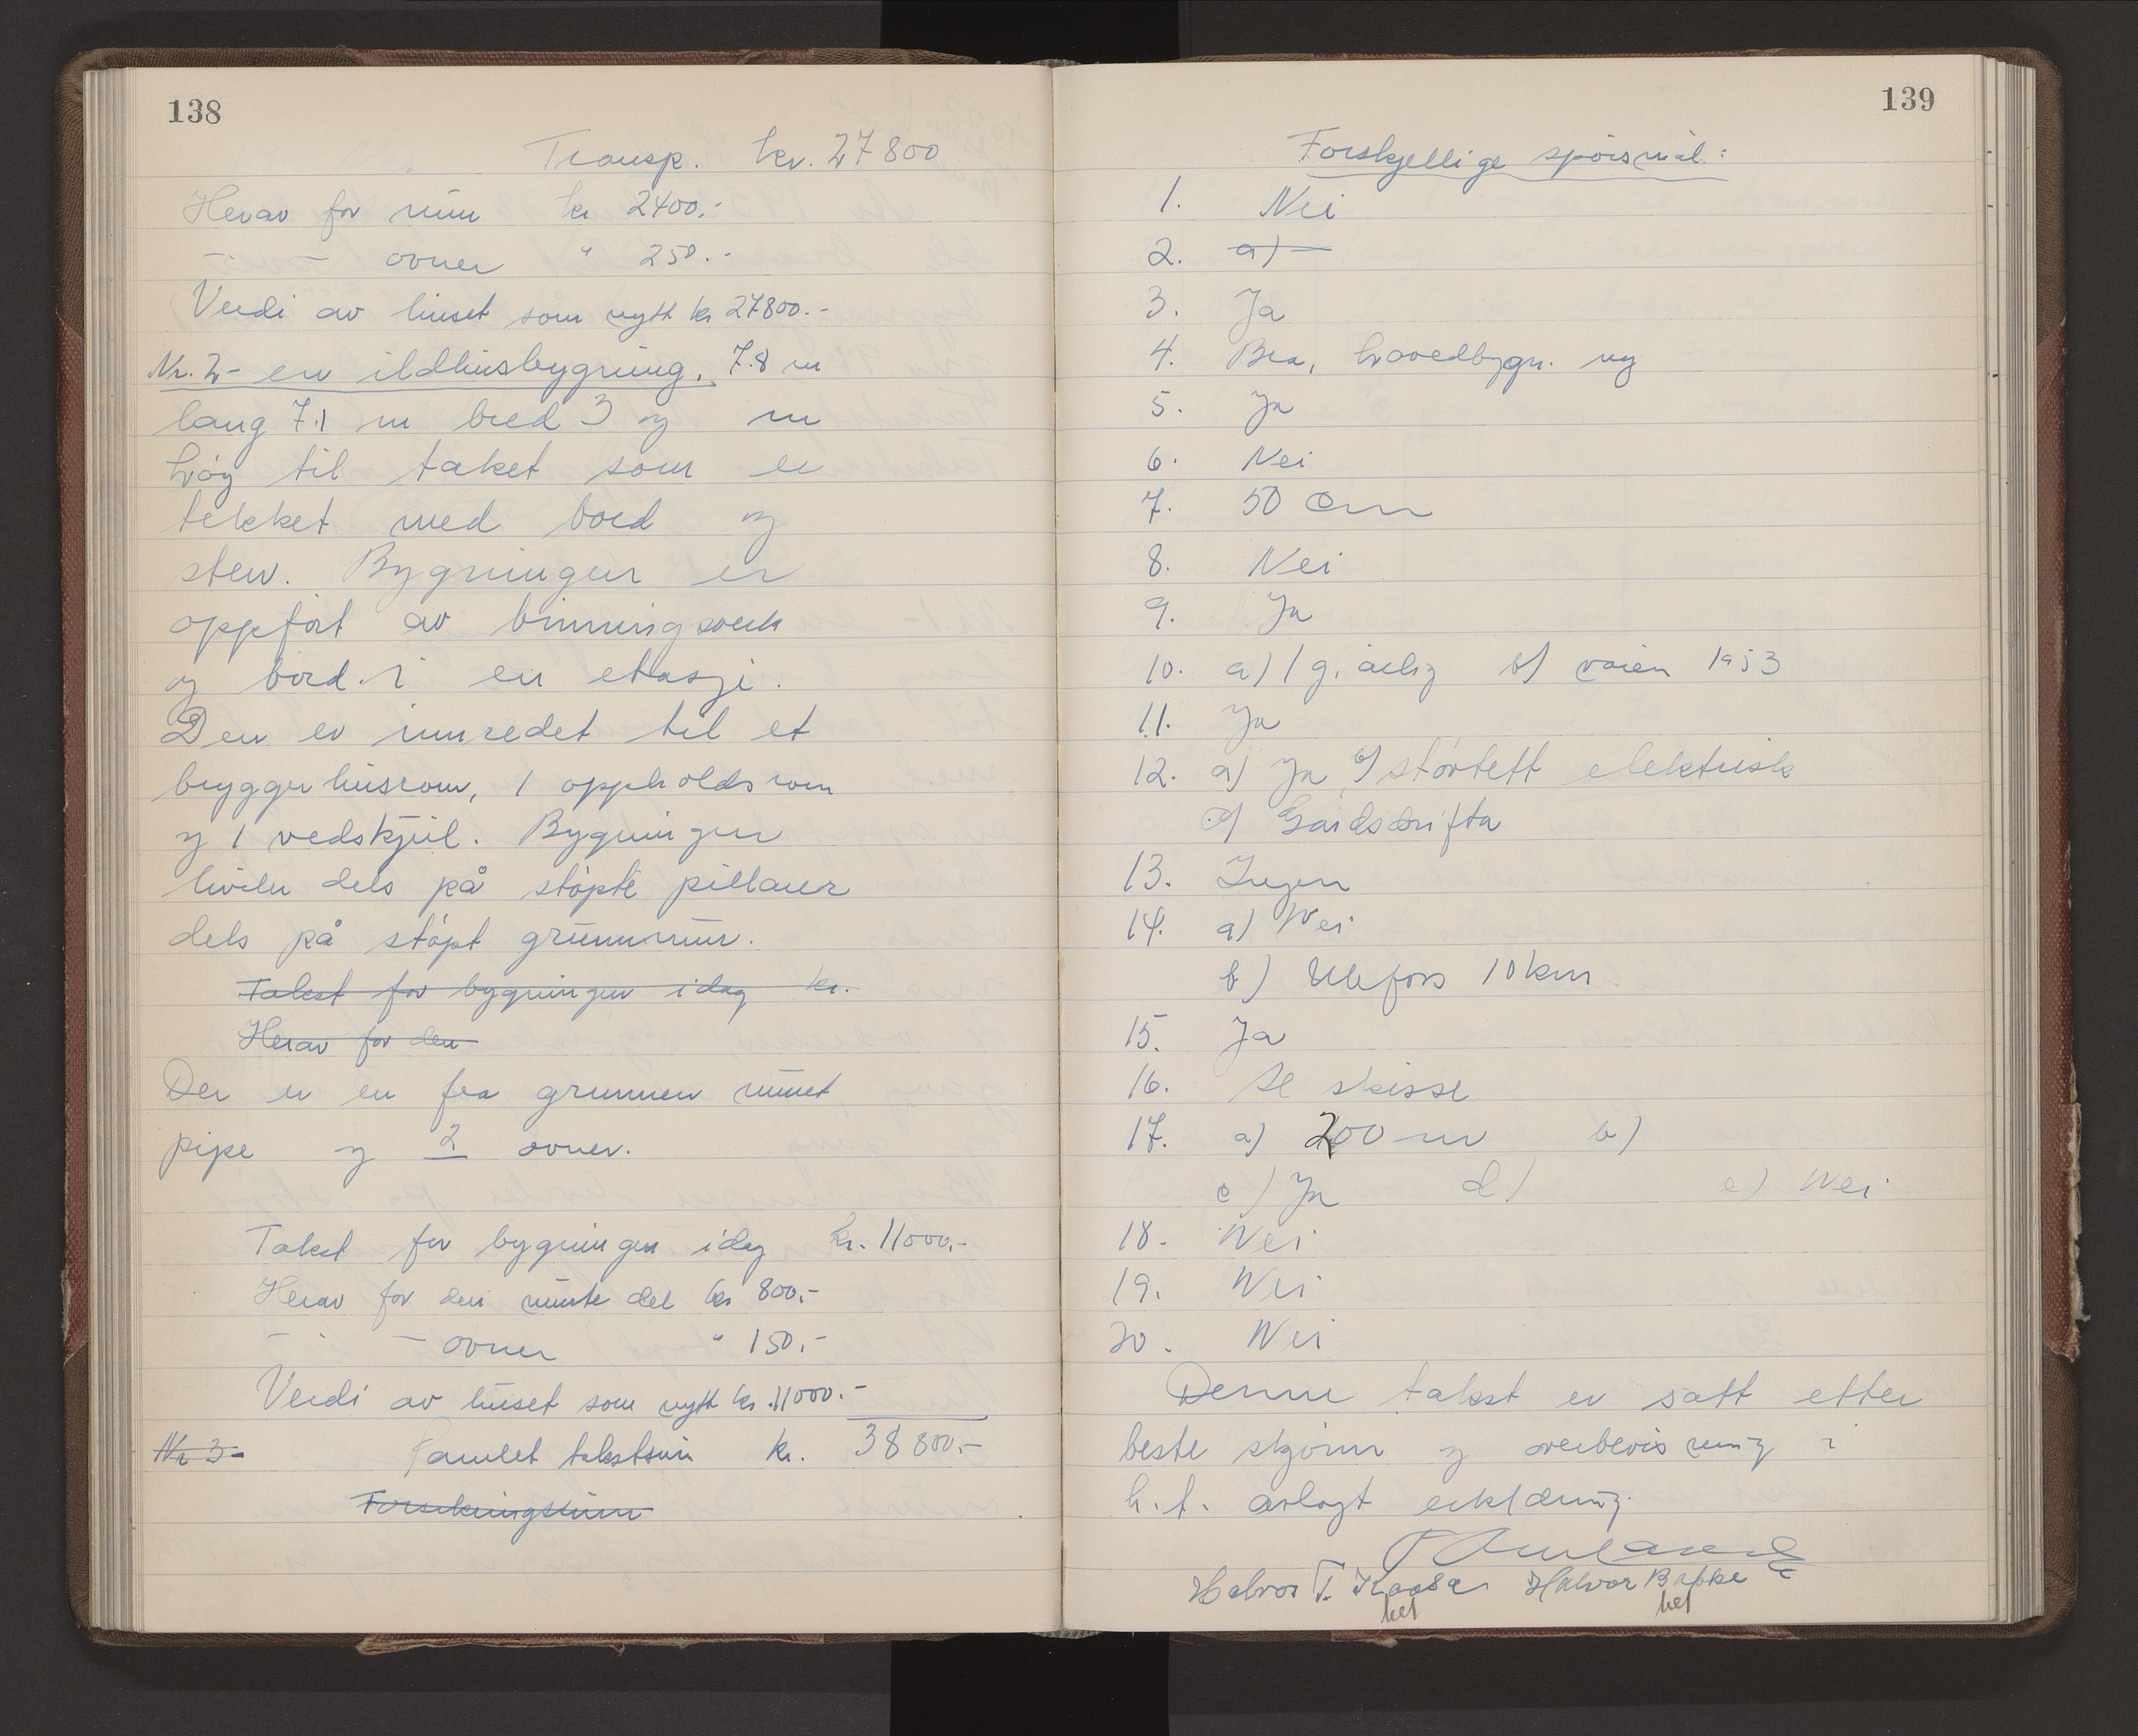 138
Transp. kr. 27800
Herav for mur kr 2400.-
- " - ovner " 250.-
Verdi av huset som nytt kr 27800.-
Nr. 2- en ildhusbygning. 7.8 m
lang 7.1 m bred 3 og m
høg til taket som er
tekket med bord og
sten. Bygningen er
oppført av binningsverk
og bord. i en etasje.
Den er innredet til et
bryggerhusrom, 1 oppholdsrom
og 1 vedskjul. Bygningen
hviler dels på støpte pillarer
dels på støpt grunnmur.
Takst for bygningen idag kr.
Herav for den
Der er en fra grunnen muret
pipe og 2 ovner.
Takst for bygningen idag kr. 11000.-
Herav for den murte del kr 800.-
- " - ovner " 150.-
Verdi av huset som nytt kr. 11000.-
Nr 3- Samlet takstsum kr. 38800.-
Forsikringssum
139
Forskjellige spørsmål:
1. Nei
2. a) —
3. Ja
4. Bra, hovedbygn. ny
5. Ja
6. Nei
7. 50 cm
8. Nei
9. Ja
10. a) 1 g. årlig b) våren 1953
11. Ja
12. a) Ja b) støvtett elektrisk
c) Gårdsdrifta
13. Ingen
14. a) Nei
b) Ulefoss 10 km
15. Ja
16. Se skisse
17. a) 200 m b)
c) Ja d) e) Nei
18. Nei
19. Nei
20. Nei
Denne takst er satt etter
beste skjønn og overbevisning i
h.t. avlagt erklæring.
Halvor T. Kaasa Halvor Bakke